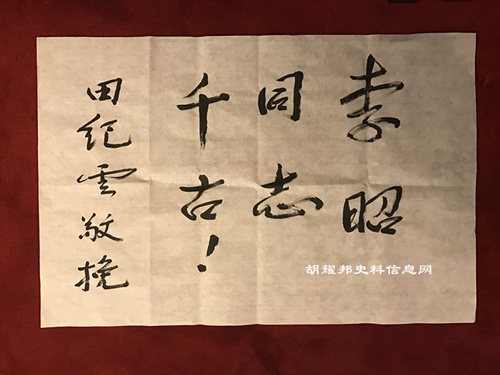 李昭
同志
千古！
田纪云敬挽
胡耀邦史料信息网